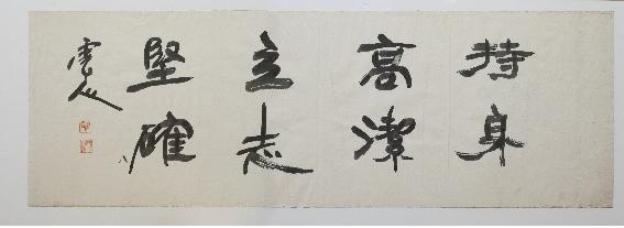 持身
高潔
立志
堅確